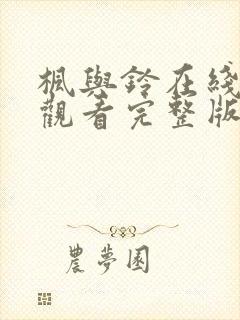 楓與鈴在綫
觀看完整版
農夢園